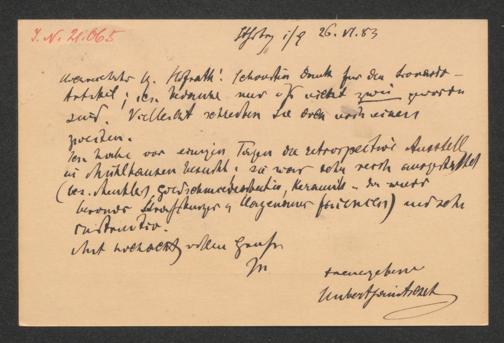 J. N. 21.065
Stßbg i/E 26. VI. 83
Verehrter H. Hofrath! Schönsten Dank für den
Artikel; ich bedaure nur daß nicht zwei
sind. Vielleicht schreiben Sie doch noch einen
zweiten.
Ich habe vor einigen Tagen die retrospective Ausstell
in Mülhausen besucht; sie war sehr reich ausgestattet
(bes. Möbel, Goldschmiedearbeiten, Keramik
Straßburger & Hagenauer Faiencen) und sehr
instructiv.
Mit hochachtgsvollem Gruße
Ihr
treuergebener
Hubert Janitschek